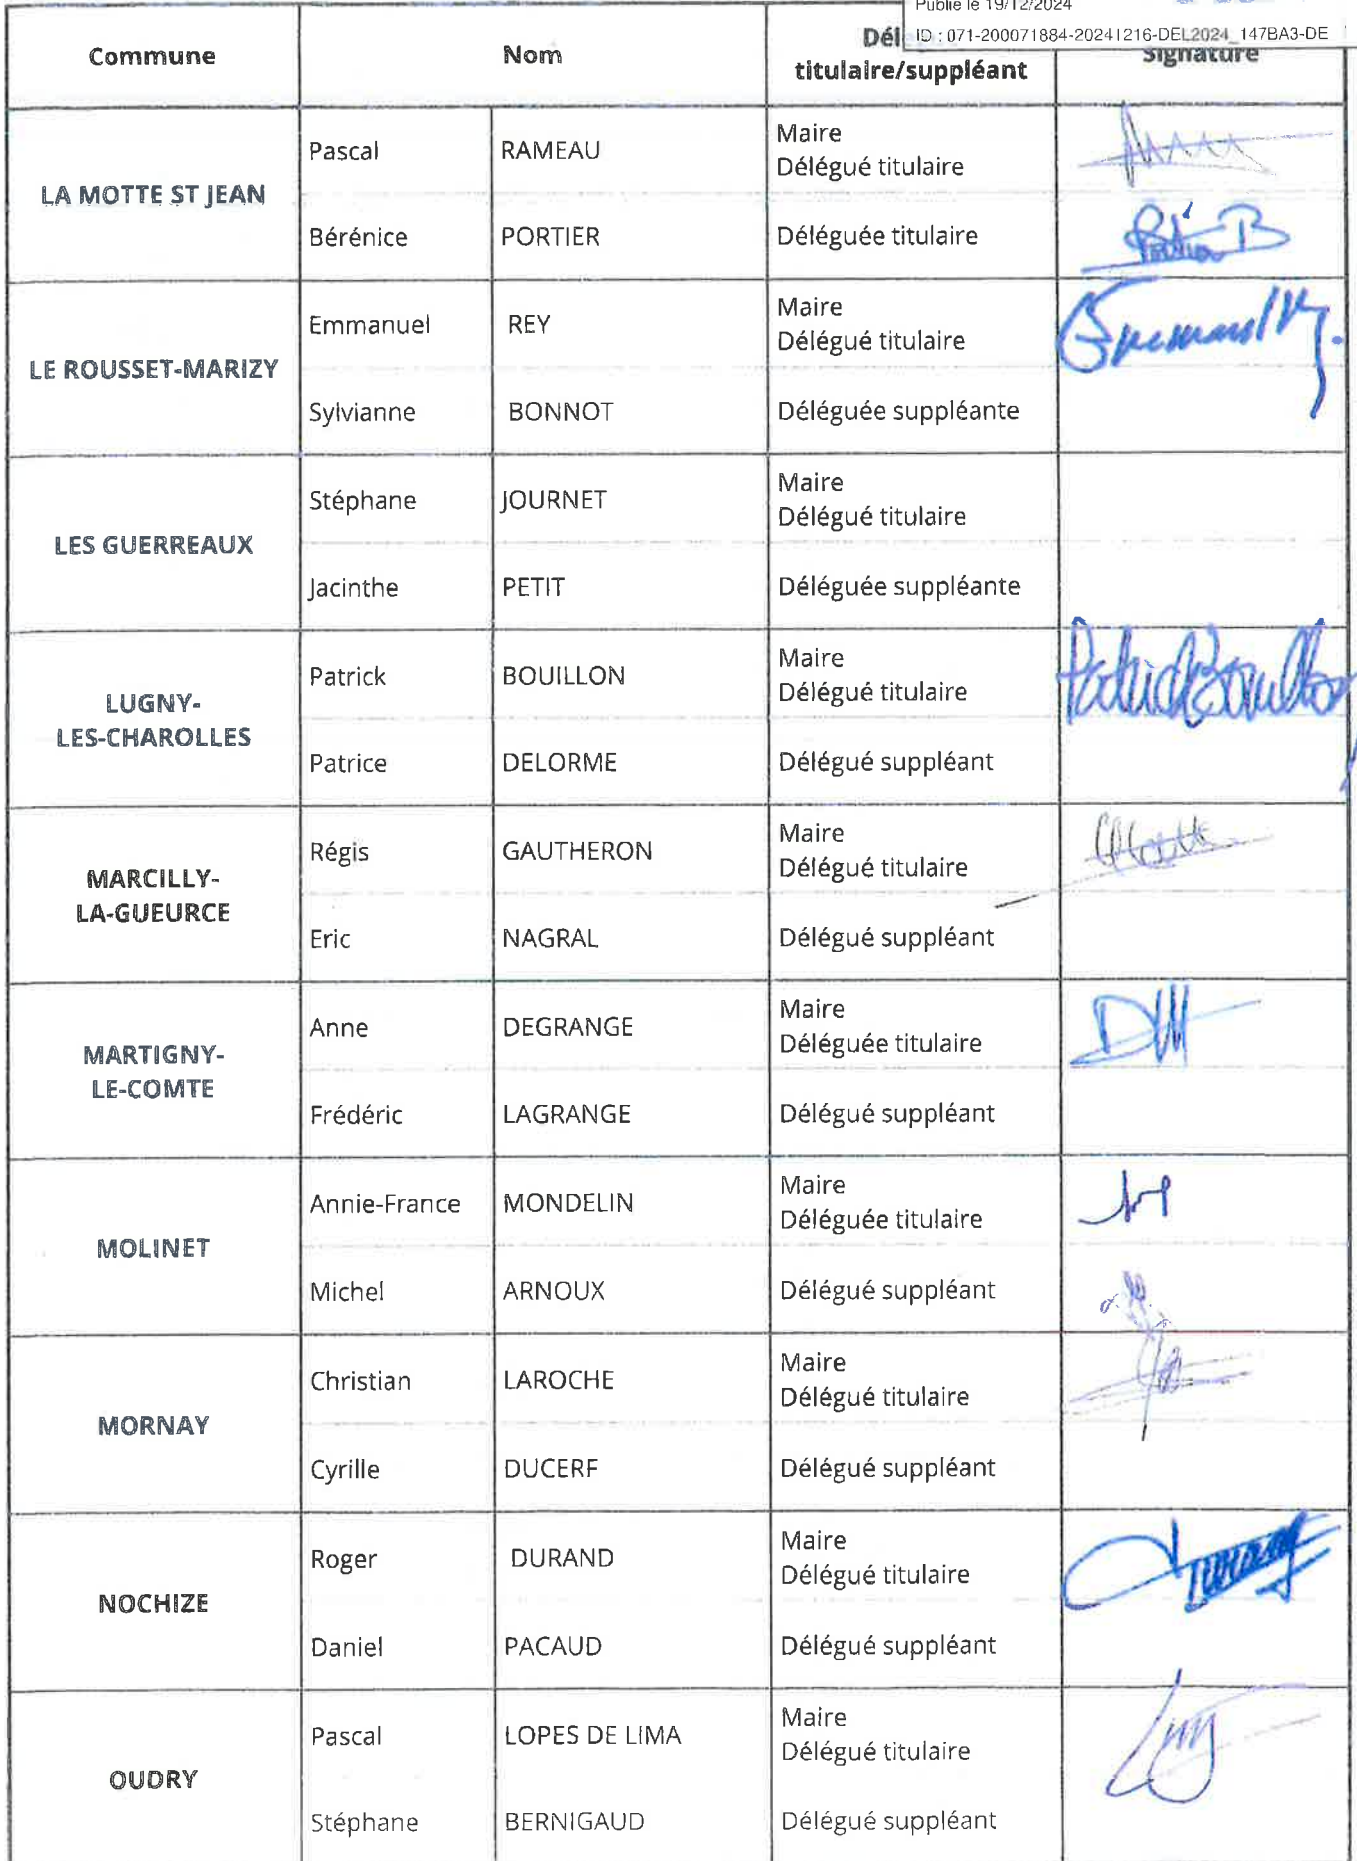 Publié le 19/12/2024
ID : 071-200071884-20241216-DEL2024_147BA3-DE
Commune
Nom
Dél
titulaire/suppléant
Signature
LA MOTTE ST JEAN
Pascal
RAMEAU
Maire
Délégué titulaire
Bérénice
PORTIER
Déléguée titulaire
LE ROUSSET-MARIZY
Emmanuel
REY
Maire
Délégué titulaire
Sylvianne
BONNOT
Déléguée suppléante
LES GUERREAUX
Stéphane
JOURNET
Maire
Délégué titulaire
Jacinthe
PETIT
Déléguée suppléante
LUGNY-
LES-CHAROLLES
Patrick
BOUILLON
Maire
Délégué titulaire
Patrick Bouillon
Patrice
DELORME
Délégué suppléant
MARCILLY-
LA-GUEURCE
Régis
GAUTHERON
Maire
Délégué titulaire
Eric
NAGRAL
Délégué suppléant
MARTIGNY-
LE-COMTE
Anne
DEGRANGE
Maire
Déléguée titulaire
Frédéric
LAGRANGE
Délégué suppléant
MOLINET
Annie-France
MONDELIN
Maire
Déléguée titulaire
Michel
ARNOUX
Délégué suppléant
MORNAY
Christian
LAROCHE
Maire
Délégué titulaire
Cyrille
DUCERF
Délégué suppléant
NOCHIZE
Roger
DURAND
Maire
Délégué titulaire
Daniel
PACAUD
Délégué suppléant
OUDRY
Pascal
LOPES DE LIMA
Maire
Délégué titulaire
Stéphane
BERNIGAUD
Délégué suppléant